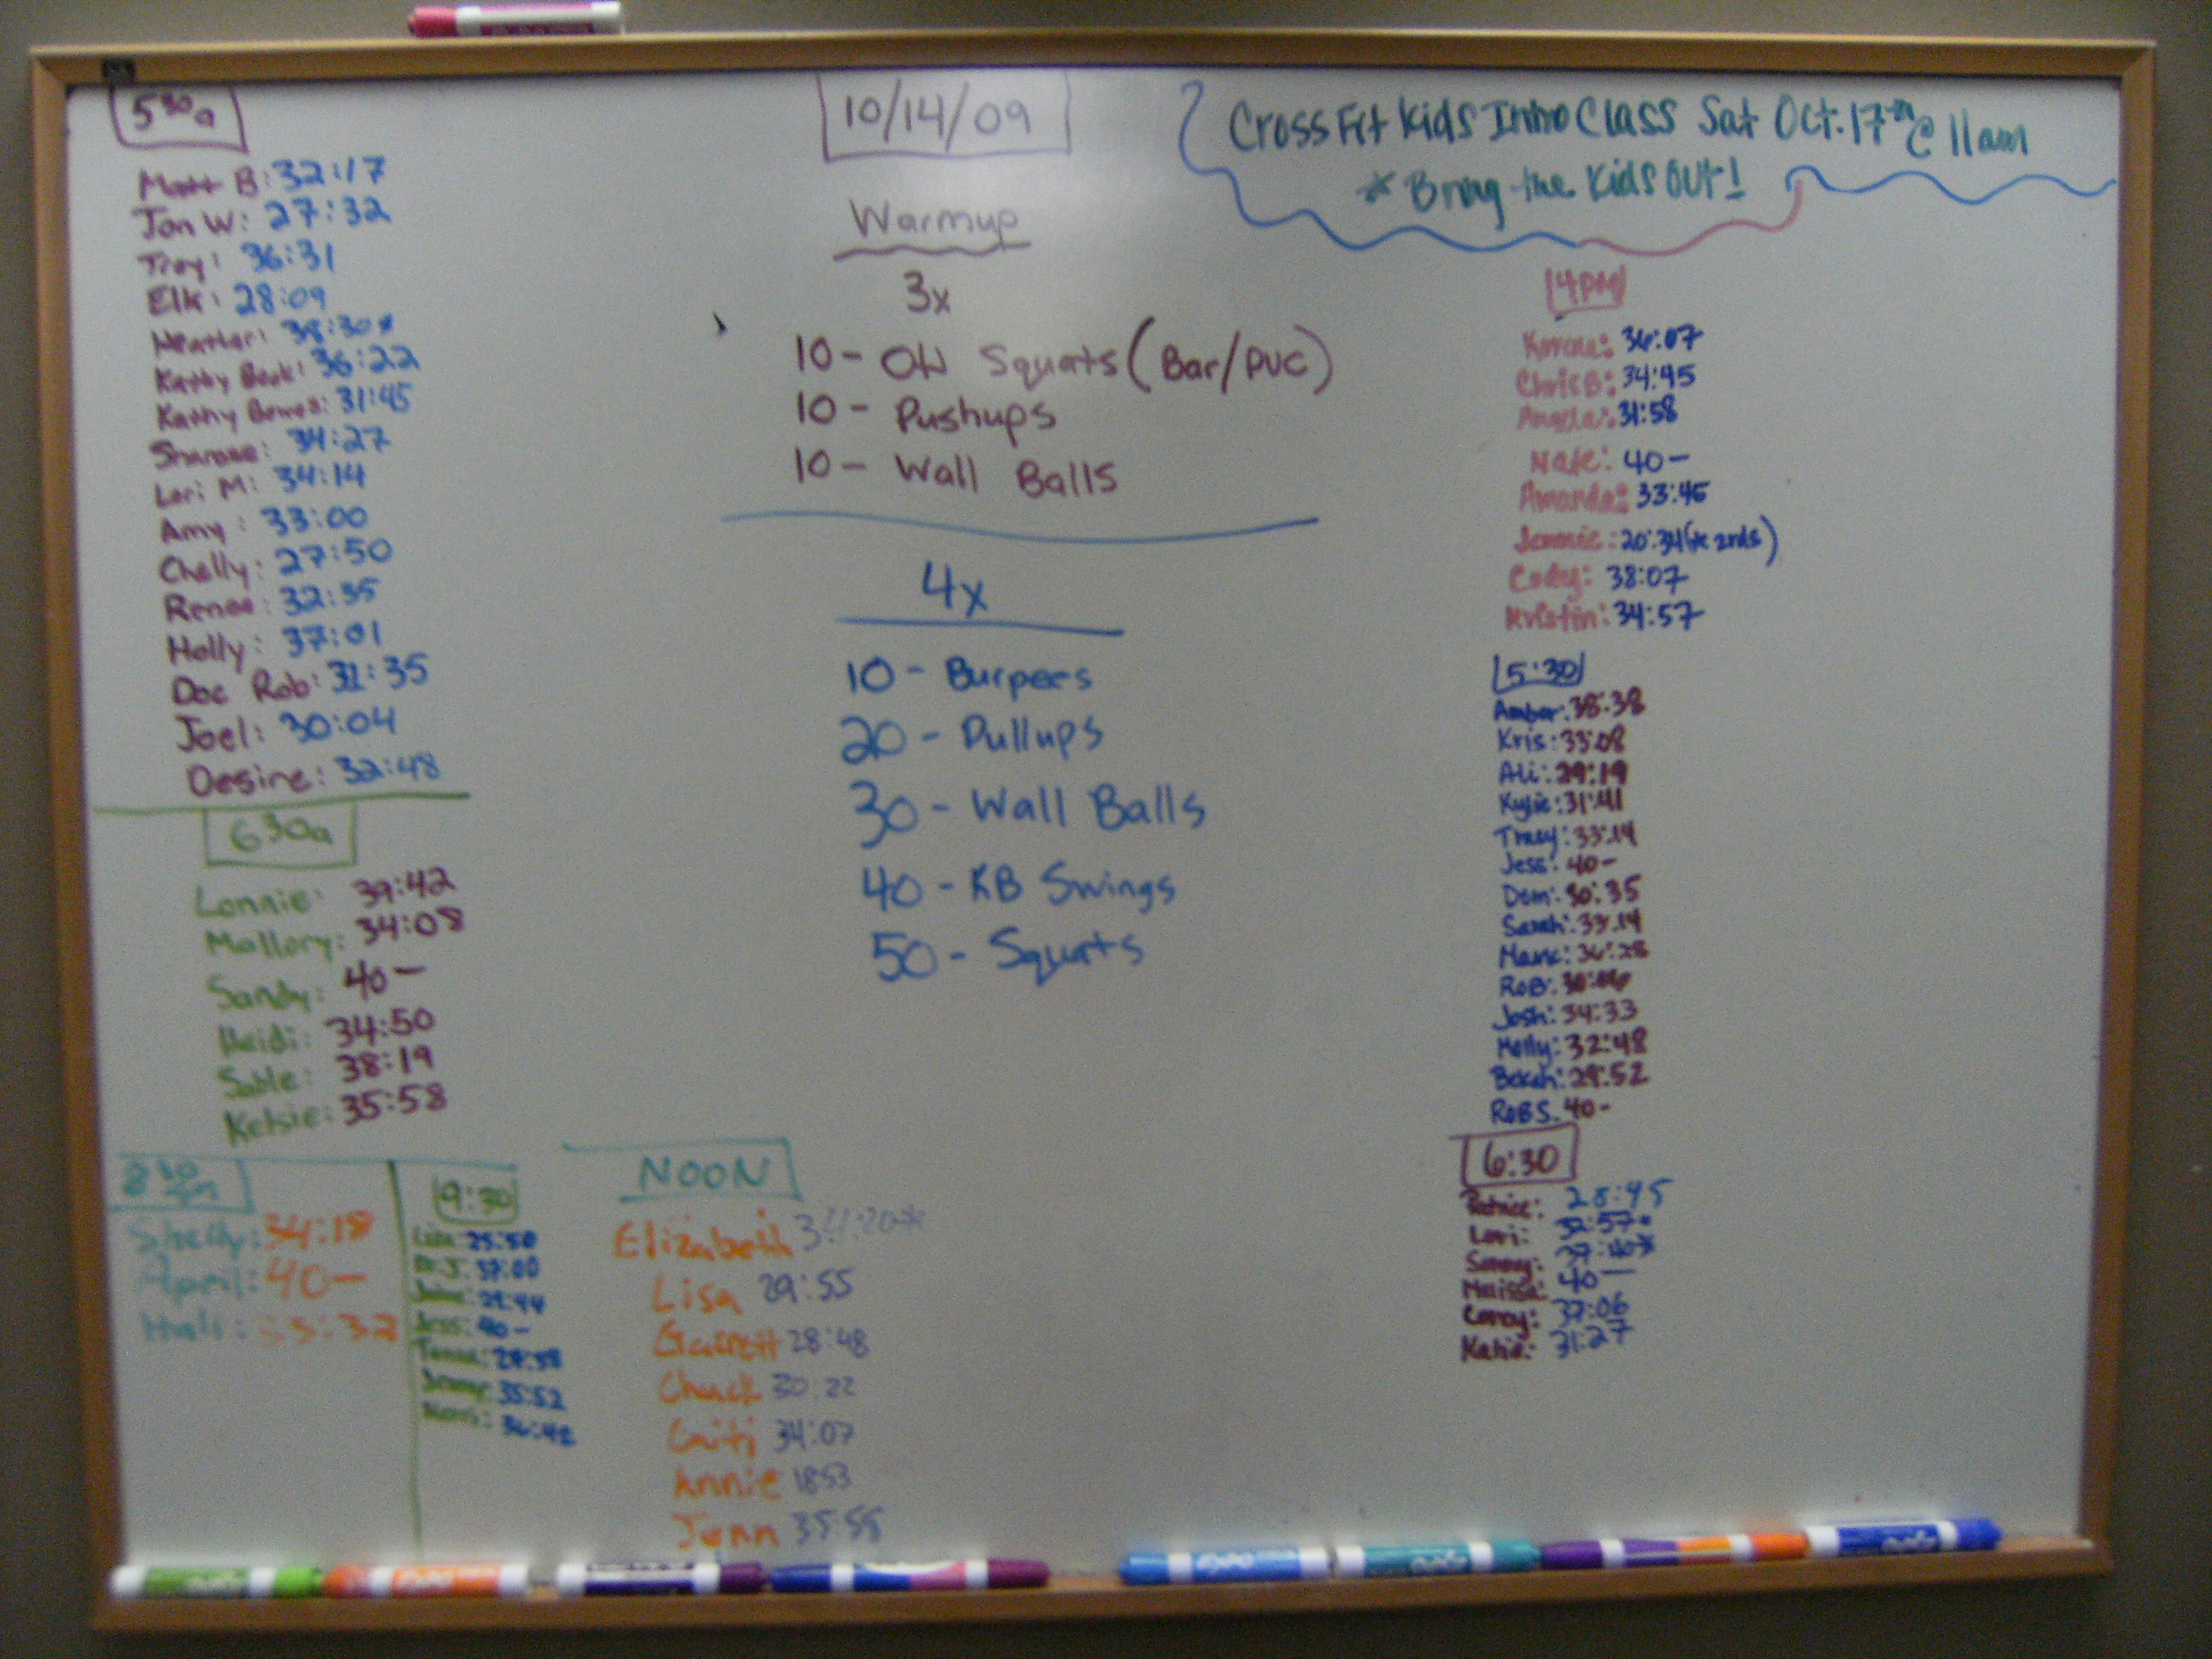 5 30a
Matt B: 32:17
Jon W: 27:32
Troy: 36:31
Elk: 28:09
Heather: 38:30*
Kathy Book: 36:22
Kathy Bowes: 31:45
34:27
Lori M: 34:14
Amy: 33:00
Chelly: 27:50
Renee: 32:35
Holly: 37:01
Doc Rob: 31:35
Joel: 30:04
Desire: 32:48
6 30a
Lonnie: 39:42
Mallory: 34:08
Sandy: 40-
Heidi: 34:50
Sable: 38:19
Kelsie: 35:58
8 30
Shelly: 34:18
April: 40-
Hali: 33:32
9:30
Lisa: 25:50
37:00
29:44
Jess: 40-
35:52
36:42
NOON
Elizabeth
Lisa 29:55
Garrett 28:48
Chuck 30:22
Caiti 34:07
Annie 1853
Jenn 35:55
10/14/09
Warmup
3x
10- OH Squats (Bar/PVC)
10- Pushups
10- Wall Balls
4x
10- Burpees
20- Pullups
30- Wall Balls
40- KB Swings
50- Squats
CrossFit Kids Intro Class Sat Oct. 17th @ 11am
* Bring the Kids Out!
4PM
36:07
Chris B: 34:45
Angela: 31:58
Nate: 40-
Amanda: 33:45
Jennie: 20:34
Codey: 38:07
Kristin: 34:57
5:30
Amber: 38:38
Kris: 33:08
Ali: 29:19
Kylie: 31:41
Tracy: 33:14
Jess: 40-
Dom: 30:35
Sarah: 33:14
36:28
ROB:
Josh: 34:33
Molly: 32:48
Bekah: 29:52
ROB S. 40-
6:30
Patrice: 28:45
Lori:
40-
Corey: 37:06
Katie: 31:27